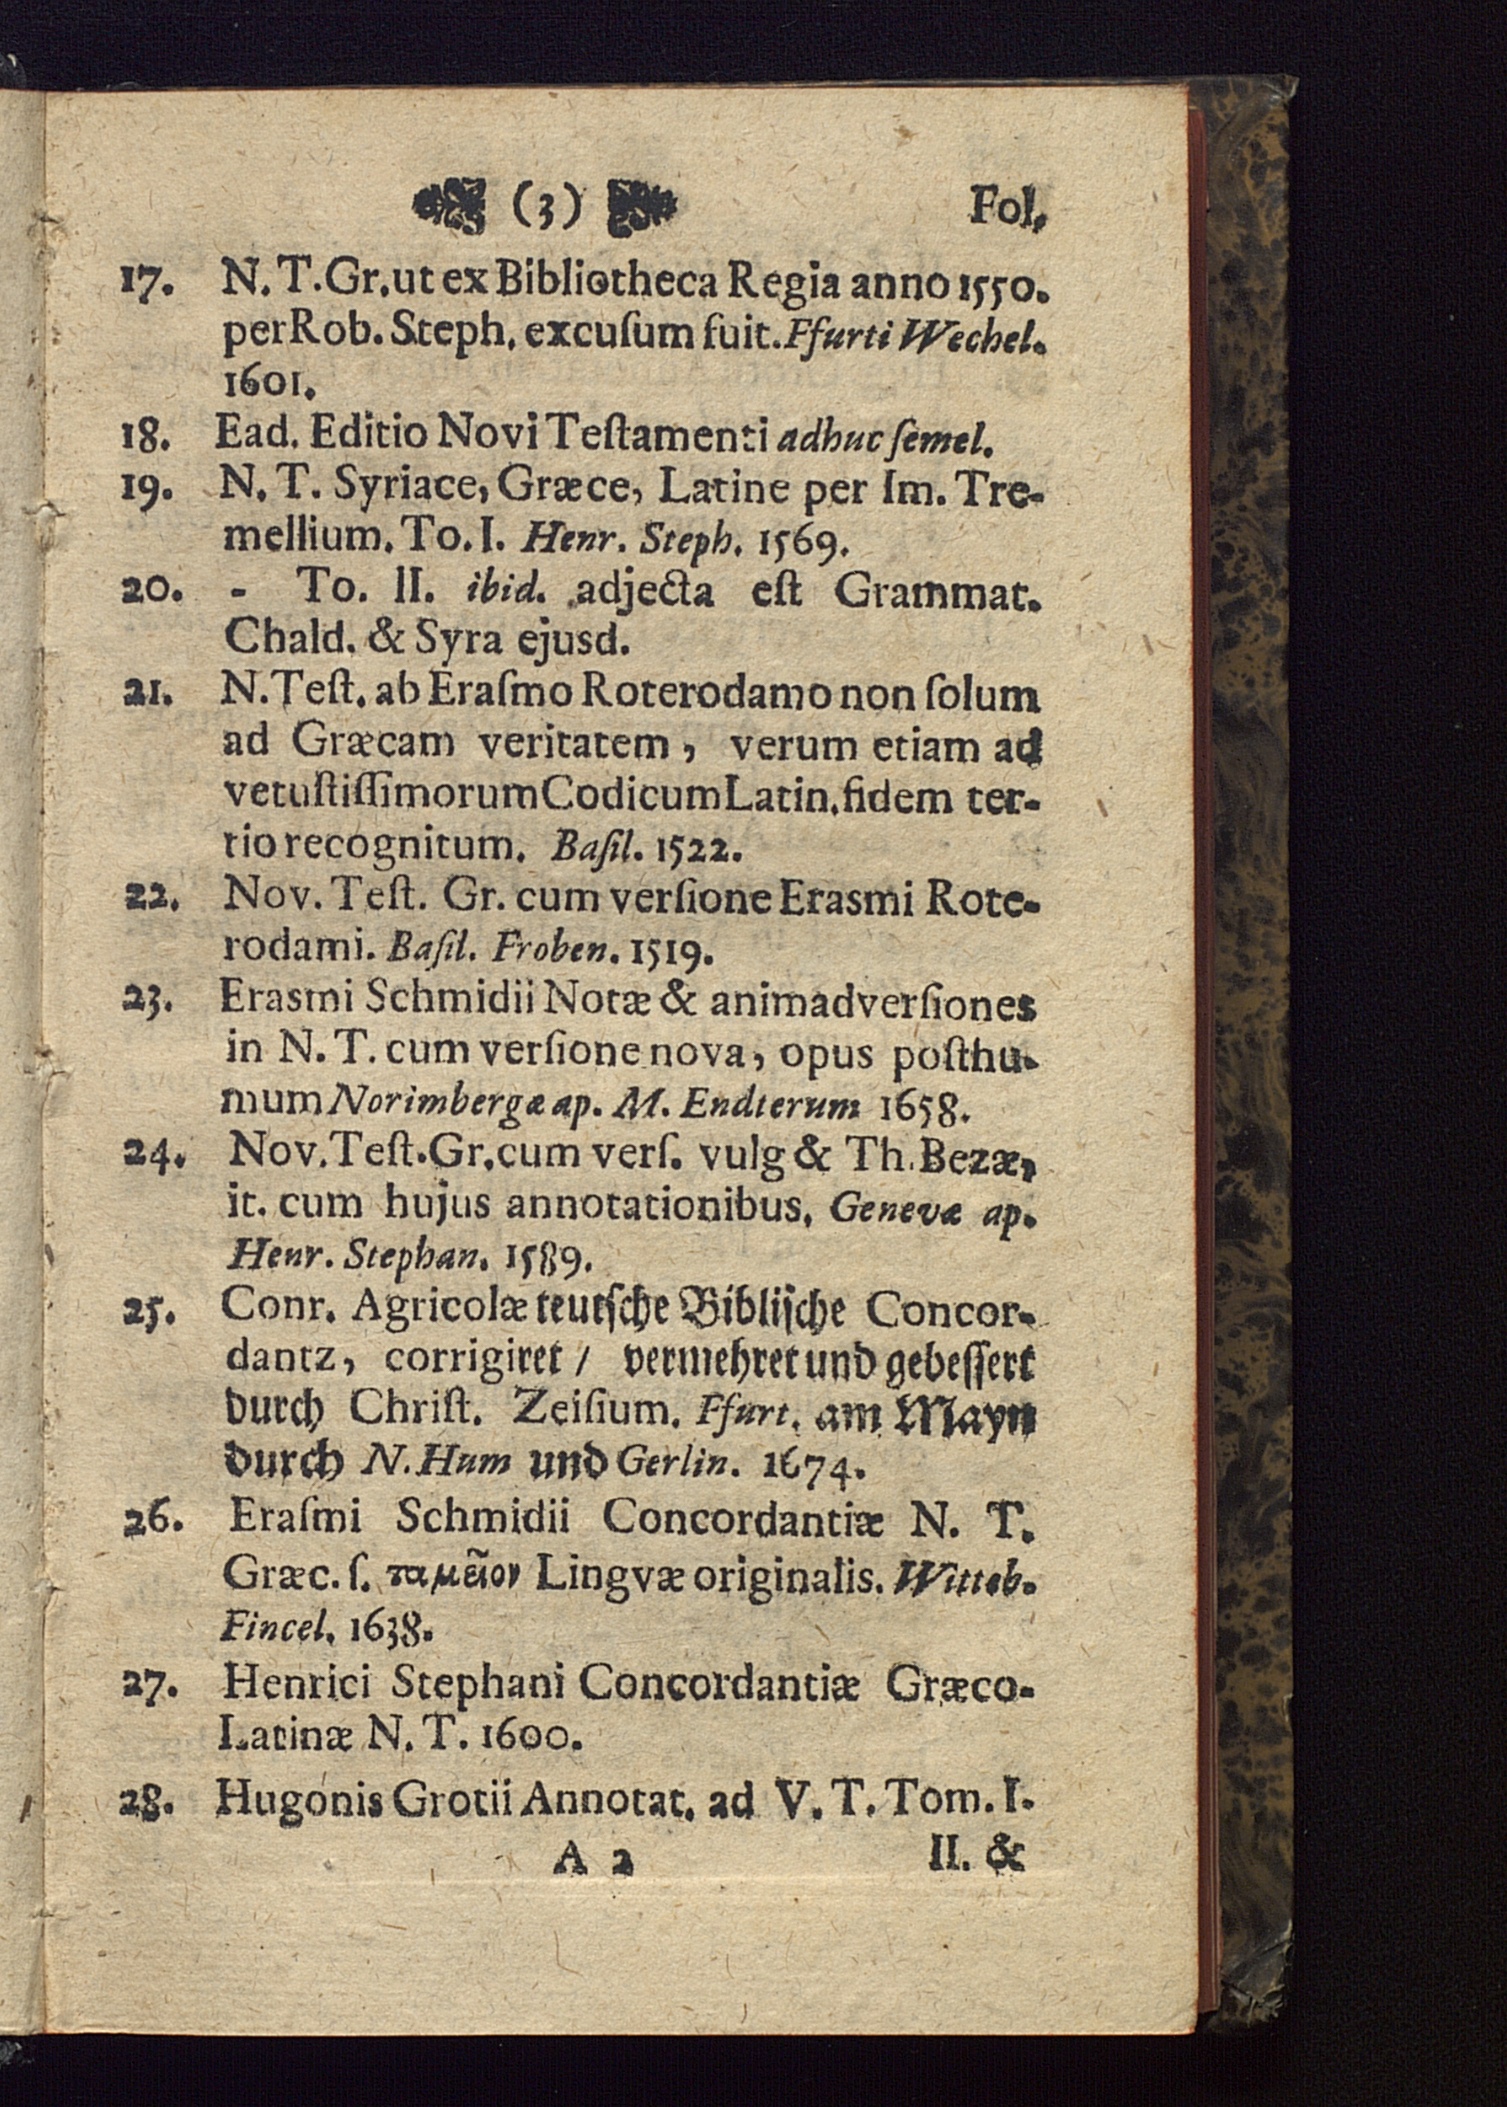 (3) Fol.
17. N. T. Gr. ut ex Bibliotheca Regia anno 1550.
per Rob. Steph. excuſum fuit. Ffurti Wechel.
1601.
18. Ead. Editio Novi Teſtamenti adhuc ſemel.
19. N. T. Syriace, Græce, Latine per Im. Tre-
mellium. To. I. Henr. Steph. 1569.
20. - To. II. ibid. adjecta eſt Grammat.
Chald. & Syra ejusd.
21. N. Teſt. ab Eraſmo Roterodamo non ſolum
ad Græcam veritatem, verum etiam ad
vetuſtiſſimorum Codicum Latin. fidem ter-
tio recognitum. Baſil. 1522.
22. Nov. Teſt. Gr. cum verſione Erasmi Rote-
rodami. Baſil. Froben. 1519.
23. Erasmi Schmidii Notæ & animadverſiones
in N. T. cum verſione nova, opus poſthu-
mum Norimbergæ ap. M. Endterum 1658.
24. Nov. Teſt. Gr. cum verſ. vulg & Th. Bezæ,
it. cum hujus annotationibus, Genevæ ap.
Henr. Stephan. 1589.
25. Conr. Agricolæ teutſche Bibliſche Concor-
dantz, corrigiret / vermehret und gebeſſert
durch Chriſt. Zeiſium. Ffurt. am Mayn
durch N. Hum und Gerlin. 1674.
26. Eraſmi Schmidii Concordantiæ N. T.
Græc. ſ. ταμεῖον Lingvæ originalis. Witteb.
Fincel. 1638.
27. Henrici Stephani Concordantiæ Græco-
Latinæ N. T. 1600.
28. Hugonis Grotii Annotat. ad V. T. Tom. I.
A 2 II. &